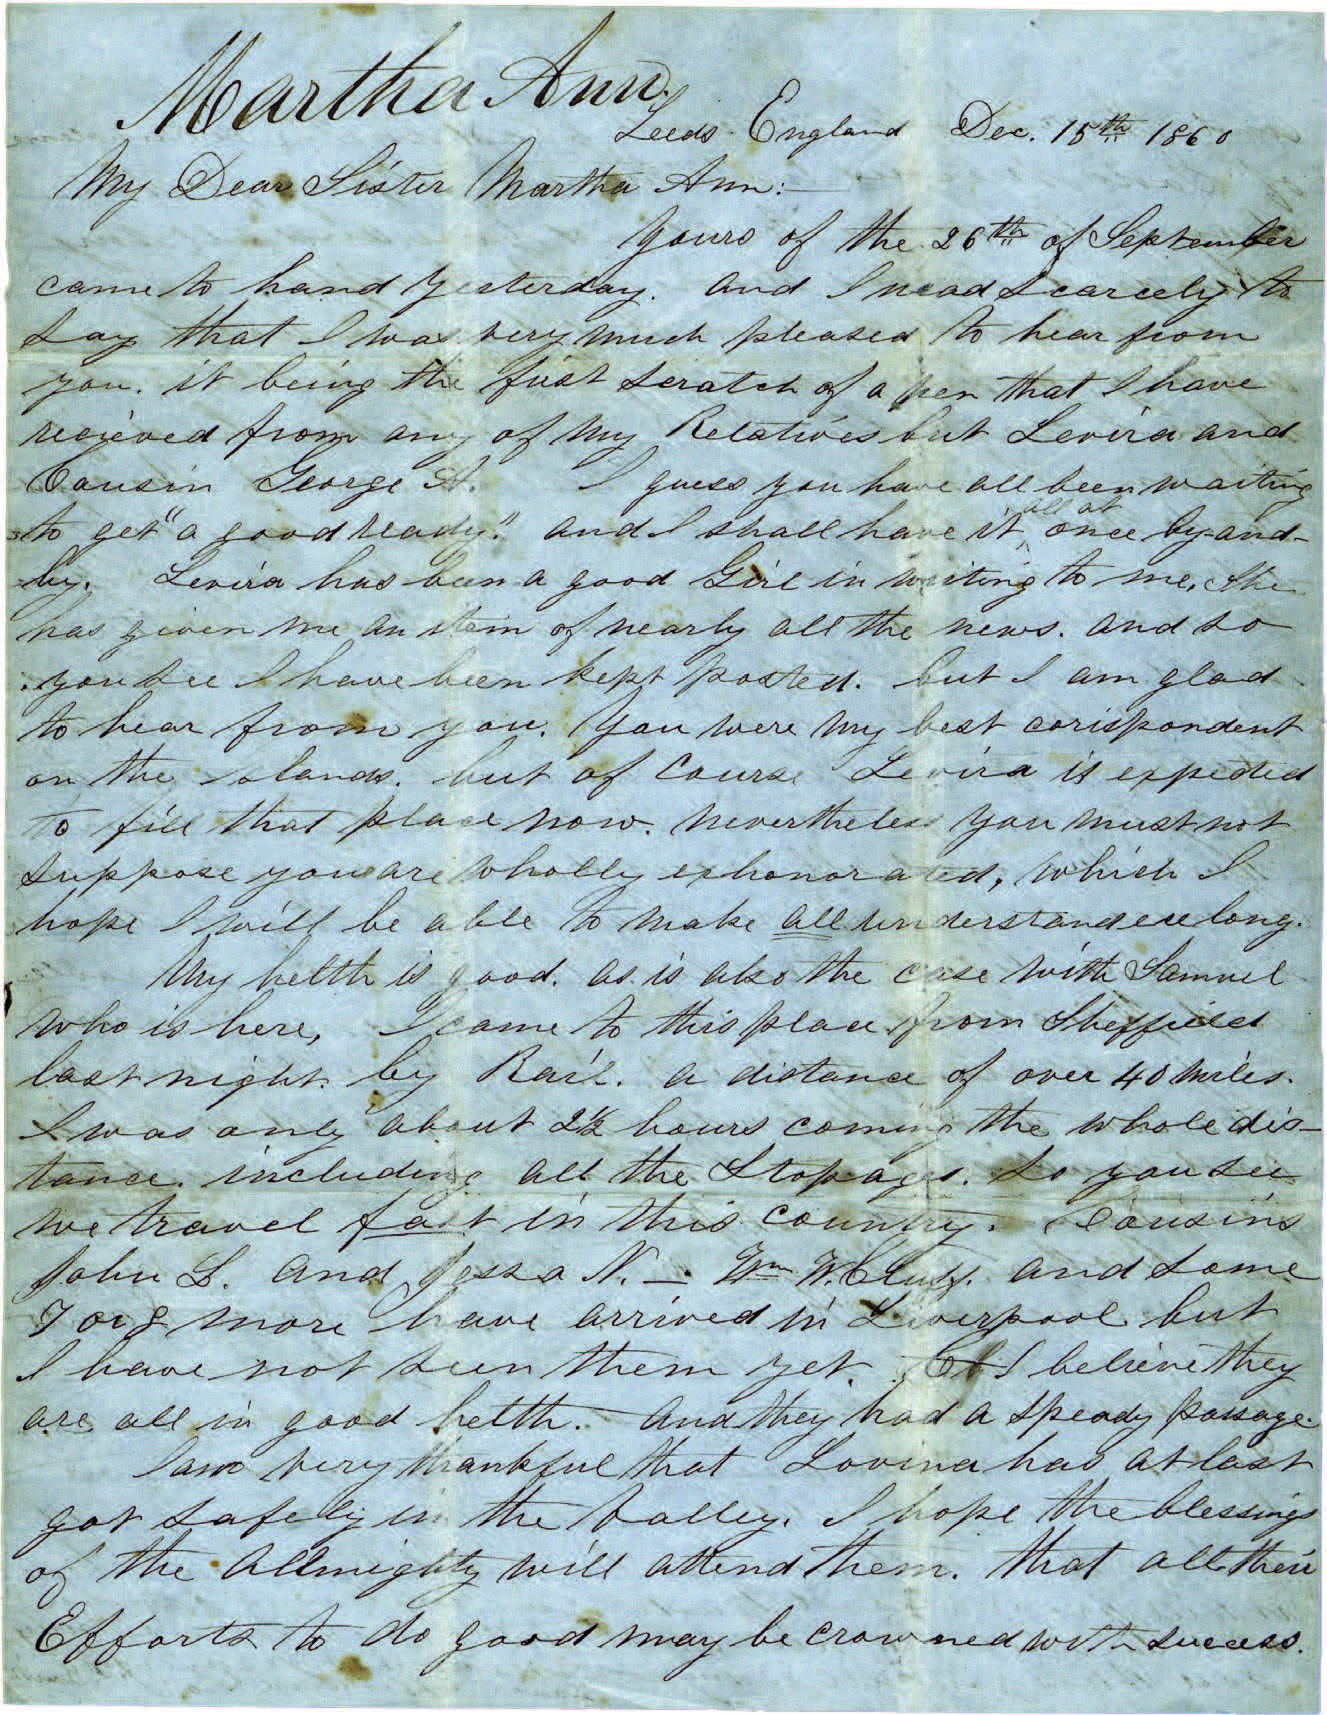 Martha Ann.
Leeds England Dec. 15th 1860
My Dear Sister Martha Ann:—
Yours of the 26th of September
came to hand Yesterday. and I nead scarcely to
say that I was very much pleased to hear from
you. it being the first scratch of a pen that I have
recieved from any of my Relatives but Levira and
Cousin George A. I guess you have all been waiting
to get "a good ready." and I shall have it all at once by-and-
by. Levira has been a good Girl in writing to me, she
has given me an item of nearly all the news. and so
you see I have been kept posted. but I am glad
to hear from you. You were my best corispondent
on the Islands. but of course Levira is expected
to fill that place now. nevertheless you must not
suppose you are wholly exhonorated, which I
hope I will be able to make all understand ere long.
My helth is good. as is also the case with Samuel
who is here, I came to this place from Sheffield
last night by Rail. a distance of over 40 miles.
I was only about 2½ hours coming the whole dis-
tance. including all the Stopages. so you see
we travel fast in this country. Cousins
John L. and Jessa N. — Wm W. Cluff. and some
7 or 8 more have arrived in Liverpool but
I have not seen them yet. I believe they
are all in good helth. and they had a speady passage.
I am very thankful that Lovina has at last
got safely in the Valley. I hope the blessings
of the Allmighty will attend them. that all their
Efforts to do good may be crowned with success.